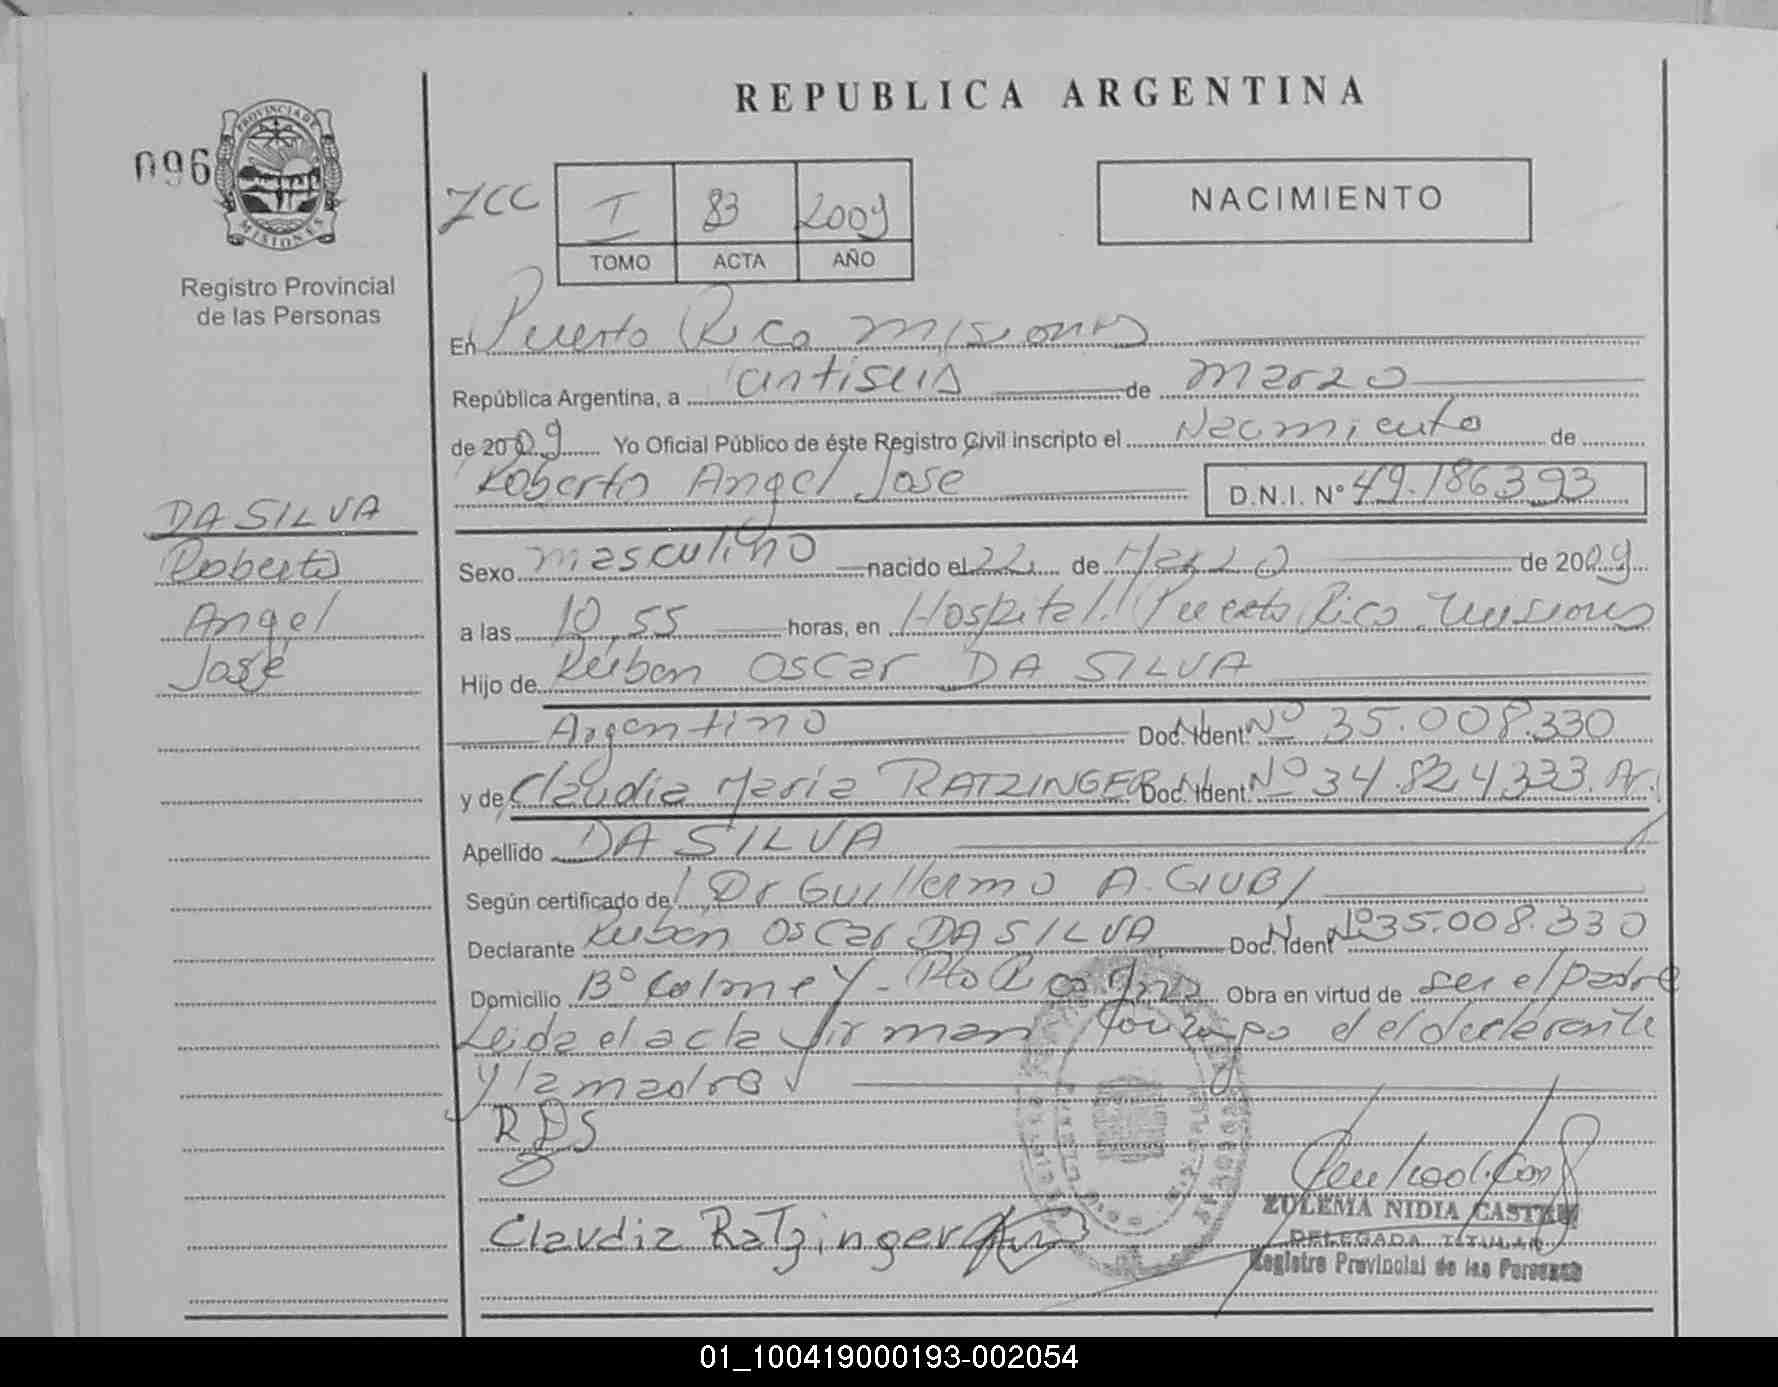 REPUBLICA ARGENTINA
096
PROVINCIA DE
MISIONES
Registro Provincial
de las Personas
ZCC
I 83 2009
TOMO ACTA AÑO
NACIMIENTO
En Puerto Rico Misiones
República Argentina, a antiseis de Marzo
de 2009 Yo Oficial Público de éste Registro Civil inscripto el Nacimiento de
Roberto Angel Jose D.N.I. N° 49.186393
DA SILVA
Roberto
Angel
José
Sexo masculino nacido el 22 de Marzo de 2009
a las 10,55 horas, en Hospital Puerto Rico Misiones
Hijo de Ruben Oscar DA SILVA
Argentino Doc. Ident. Nº 35.008.330
y de Claudia Maria RATZINGER Doc. Ident. Nº 34.824333. Ar.
Apellido DA SILVA
Según certificado de Dr Guillermo A. GIUBI
Declarante Ruben Oscar DA SILVA Doc. Ident Nº 35.008.330
Domicilio Bº Colme Y - Pto Rico Mnes Obra en virtud de ser el padre
Leida el acta firman conmigo el declarante
y la madre
RDS
Claudia Ratzinger
ZULEMA NIDIA
DELEGADA TITULAR
Registro Provincial de las Personas
01_100419000193-002054